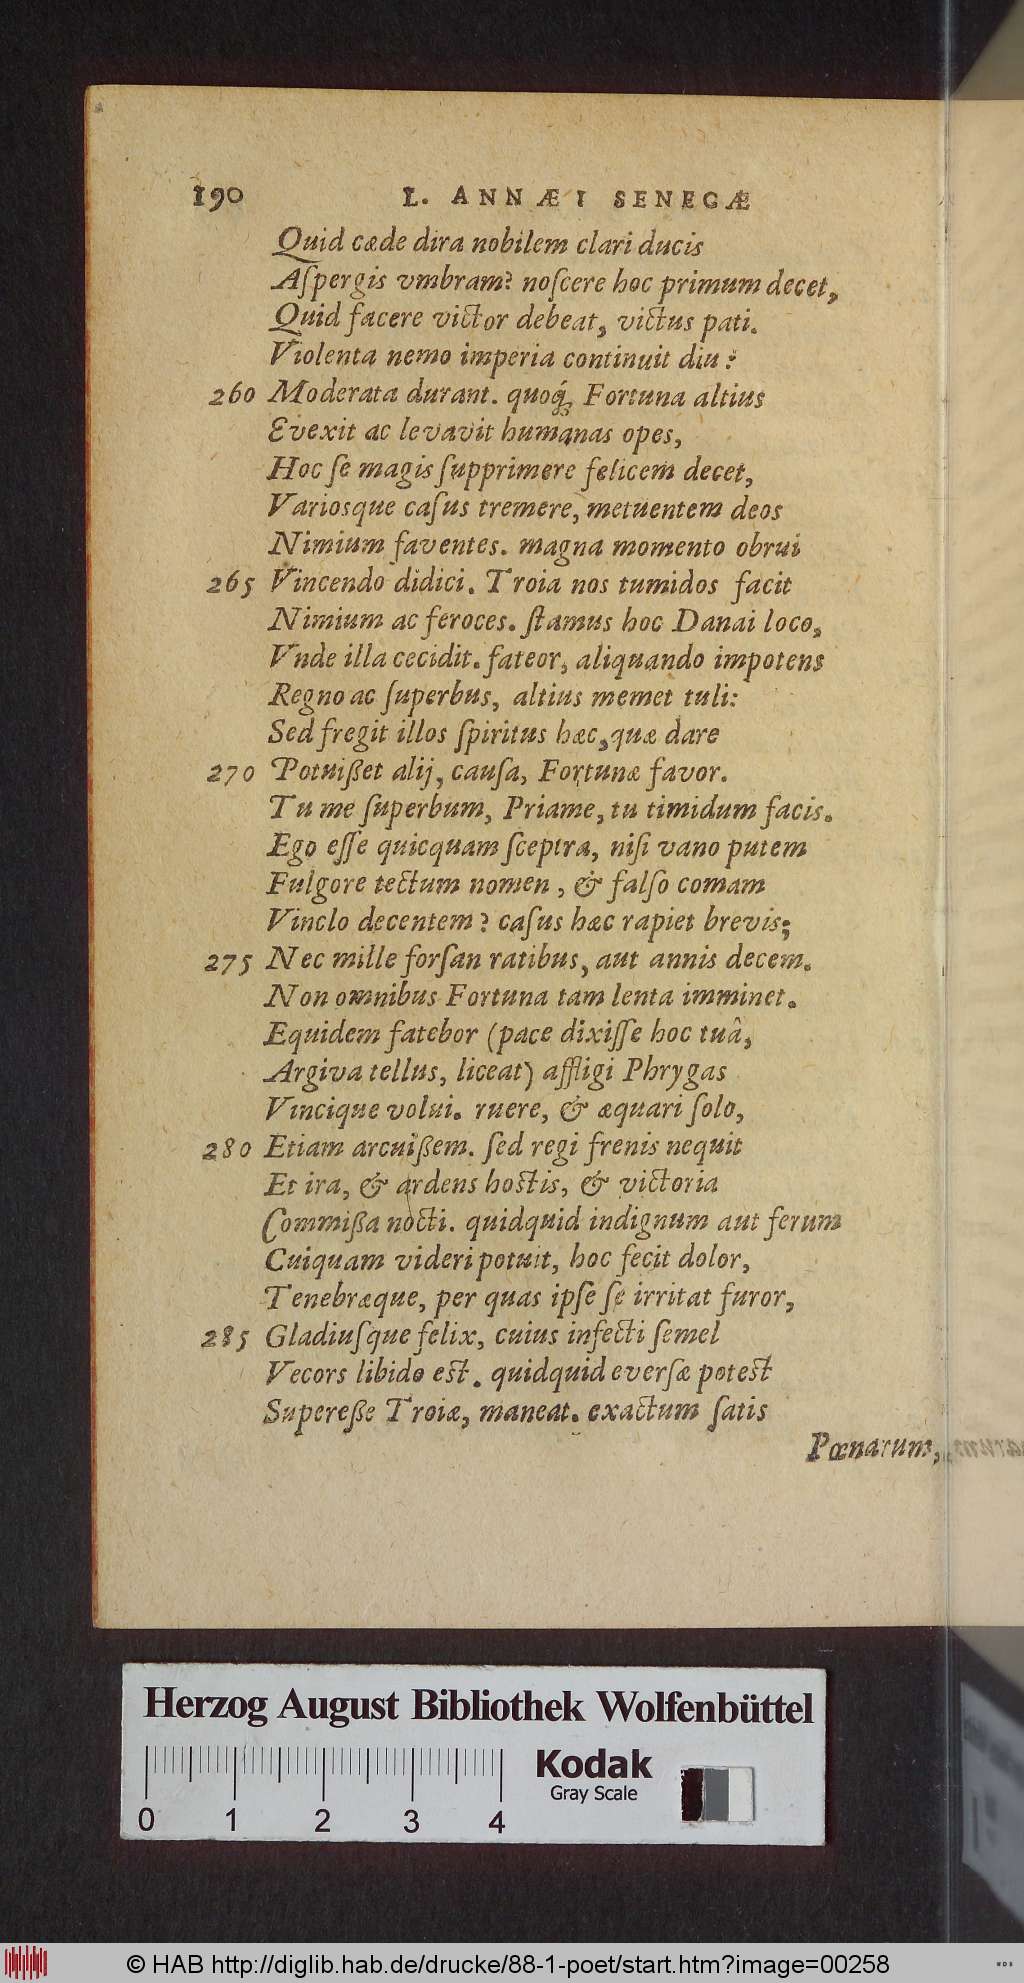 190 L. ANNÆI SENECÆ
Quid cæde dira nobilem clari ducis
Aſpergis vmbram? noſcere hoc primum decet,
Quid facere victor debeat, victus pati.
Violenta nemo imperia continuit diu:
260 Moderata durant. quoq́; Fortuna altius
Evexit ac levavit humanas opes,
Hoc ſe magis ſupprimere felicem decet,
Variosque caſus tremere, metuentem deos
Nimium faventes. magna momento obrui
265 Vincendo didici. Troia nos tumidos facit
Nimium ac feroces. ſtamus hoc Danai loco,
Vnde illa cecidit. fateor, aliquando impotens
Regno ac ſuperbus, altius memet tuli:
Sed fregit illos ſpiritus hæc, quæ dare
270 Potuißet alij, cauſa, Fortunæ favor.
Tu me ſuperbum, Priame, tu timidum facis.
Ego eſſe quicquam ſceptra, niſi vano putem
Fulgore tectum nomen, & falſo comam
Vinclo decentem? caſus hæc rapiet brevis;
275 Nec mille forſan ratibus, aut annis decem.
Non omnibus Fortuna tam lenta imminet.
Equidem fatebor (pace dixiſſe hoc tuâ,
Argiva tellus, liceat) affligi Phrygas
Vincique volui. ruere, & æquari ſolo,
280 Etiam arcuißem. ſed regi frenis nequit
Et ira, & ardens hostis, & victoria
Commißa nocti. quidquid indignum aut ferum
Cuiquam videri potuit, hoc fecit dolor,
Tenebræque, per quas ipſe ſe irritat furor,
285 Gladiuſque felix, cuius infecti ſemel
Vecors libido est. quidquid everſæ potest
Supereße Troiæ, maneat. exactum ſatis
Pœnarum,
Herzog August Bibliothek Wolfenbüttel
Kodak
Gray Scale
0 1 2 3 4
© HAB http://diglib.hab.de/drucke/88-1-poet/start.htm?image=00258